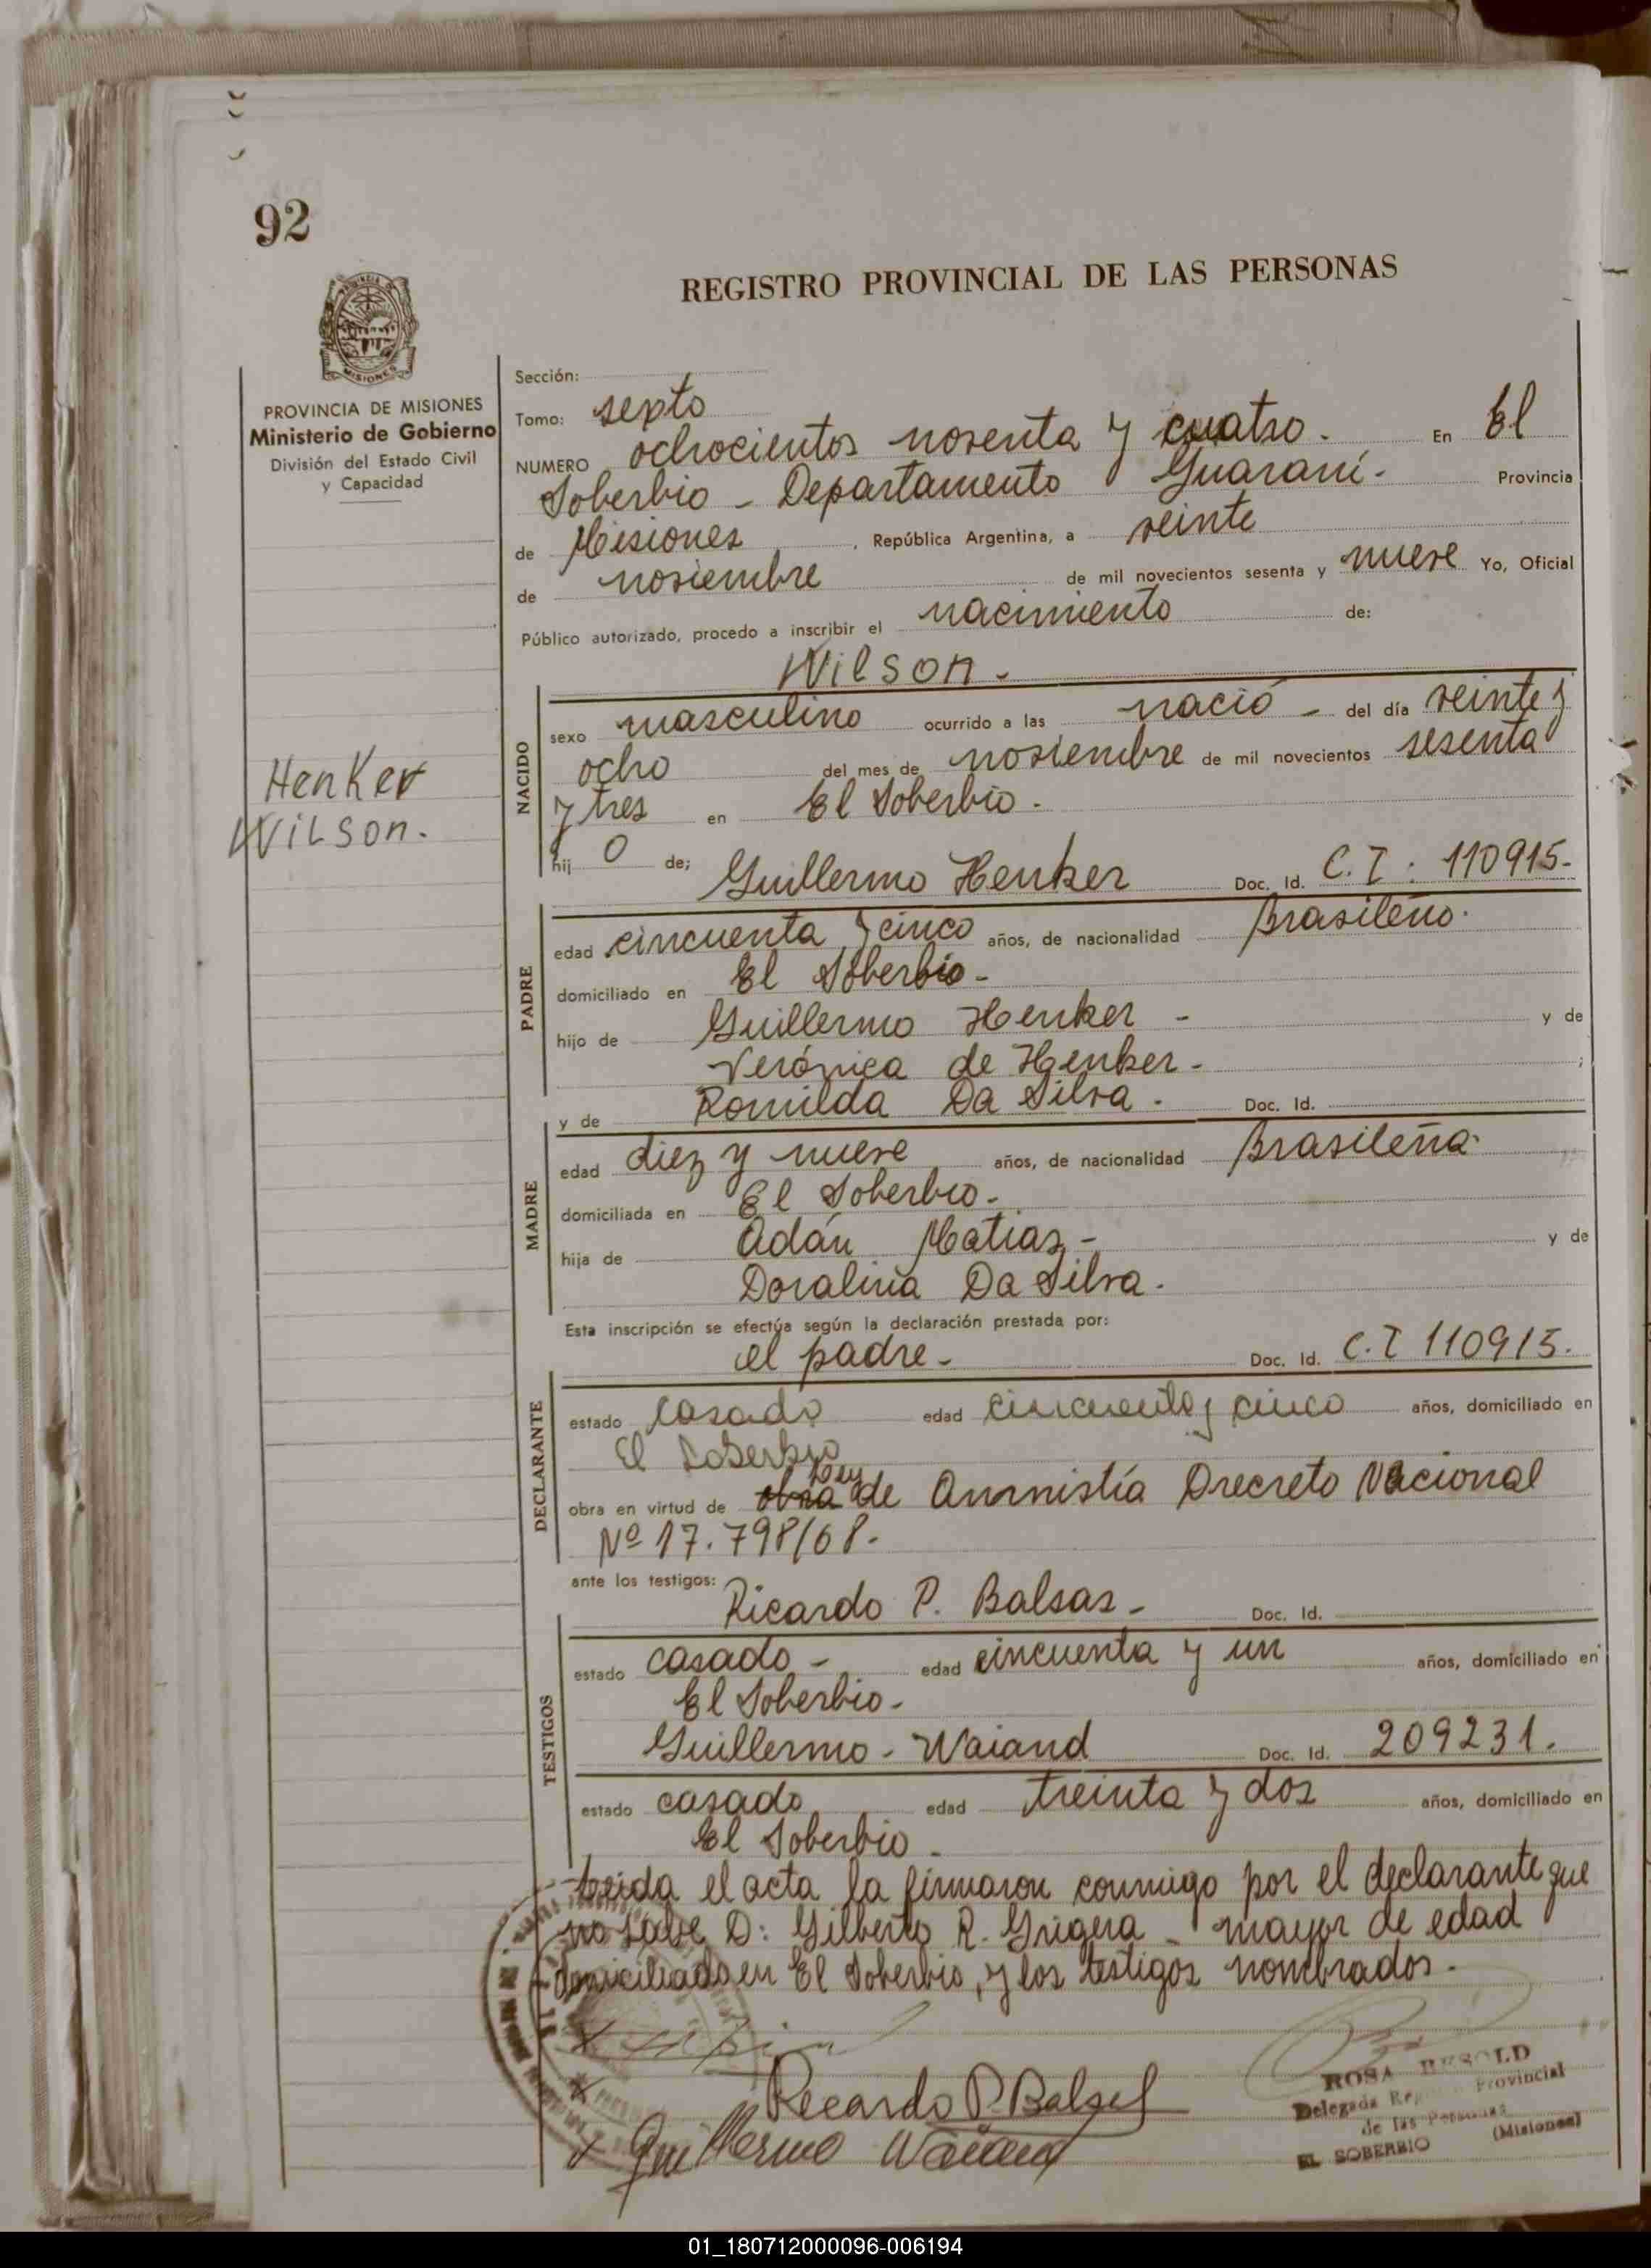 92
REGISTRO PROVINCIAL DE LAS PERSONAS
MISIONES
PROVINCIA DE MISIONES
Ministerio de Gobierno
División del Estado Civil
y Capacidad
Henker
Wilson.
Sección:
Tomo: sexto
NUMERO ochocientos noventa y cuatro. En El
Soberbio - Departamento Guaraní - Provincia
de Misiones, República Argentina, a veinte
de noviembre de mil novecientos sesenta y nueve Yo, Oficial
Público autorizado, procedo a inscribir el nacimiento de:
Wilson -
NACIDO
sexo masculino ocurrido a las nació - del día veinte y
ocho del mes de noviembre de mil novecientos sesenta
y tres en El Soberbio -
hij o de; Guillermo Henker Doc. Id. C. I : 110915-
PADRE
edad cincuenta y cinco años, de nacionalidad Brasileño.
domiciliado en El Soberbio -
hijo de Guillermo Henker - y de
Verónica de Henker - ;
y de Romilda Da Silva - Doc. Id.
MADRE
edad diez y nueve años, de nacionalidad Brasileña.
domiciliada en El Soberbio -
hija de Adán Matias - y de
Doralina Da Silva.
Esta inscripción se efectúa según la declaración prestada por:
el padre - Doc. Id. C. I 110915.
DECLARANTE
estado casado edad cincuenta y cinco años, domiciliado en
El Soberbio
obra en virtud de obra Ley de Anmistía Drecreto Nacional
Nº 17.798/68-
ante los testigos: Ricardo P. Balsas - Doc. Id.
TESTIGOS
estado casado - edad cincuenta y un años, domiciliado en
El Soberbio -
Guillermo - Waiand Doc. Id. 209231.
estado casado edad treinta y dos años, domiciliado en
El Soberbio -
Leida el acta la firmaron conmigo por el declarante que
no sabe D: Gilberto R. Grigera - mayor de edad
domiciliado en El Soberbio, y los testigos nombrados -
Ricardo P. Balsas
Guillermo Waiand
ROSA RESOLD
Delegada Provincial
de las Personas
EL SOBERBIO (Misiones)
01_180712000096-006194